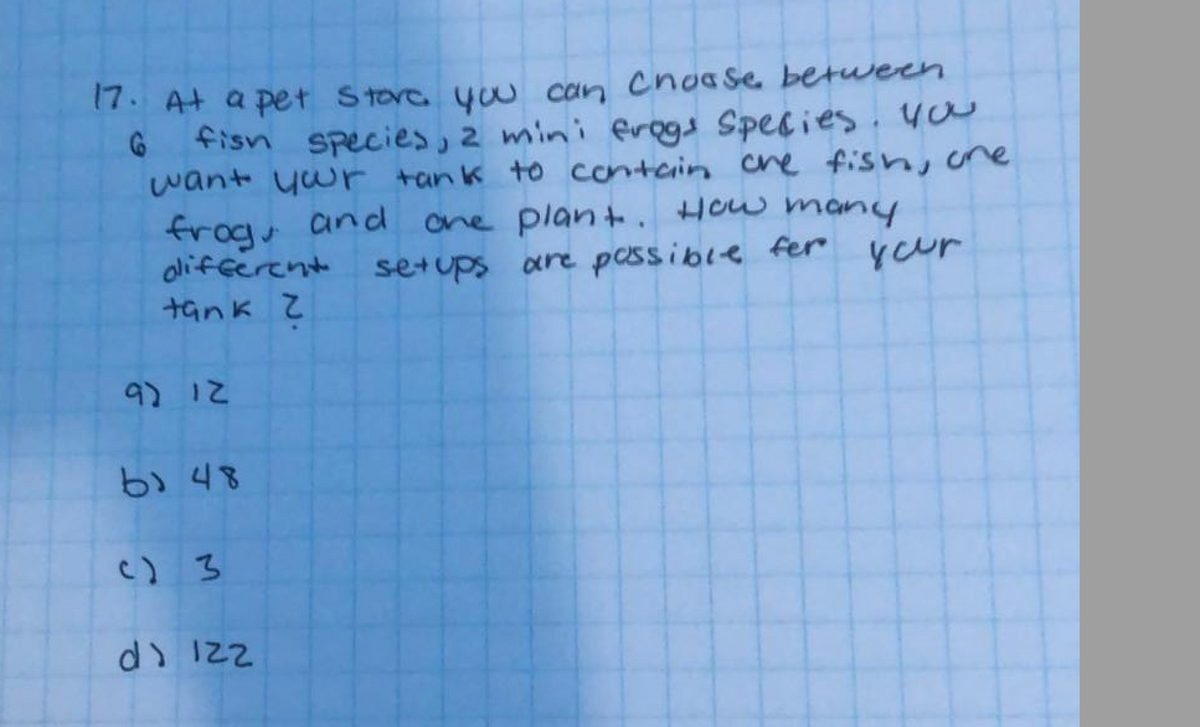 17. At a pet store you can choose between
6 fish species, 2 mini frogs species. you
want your tank to contain one fish, one
frog, and one plant. How many
different setups are possible for your
tank?
a) 12
b) 48
c) 3
d) 122